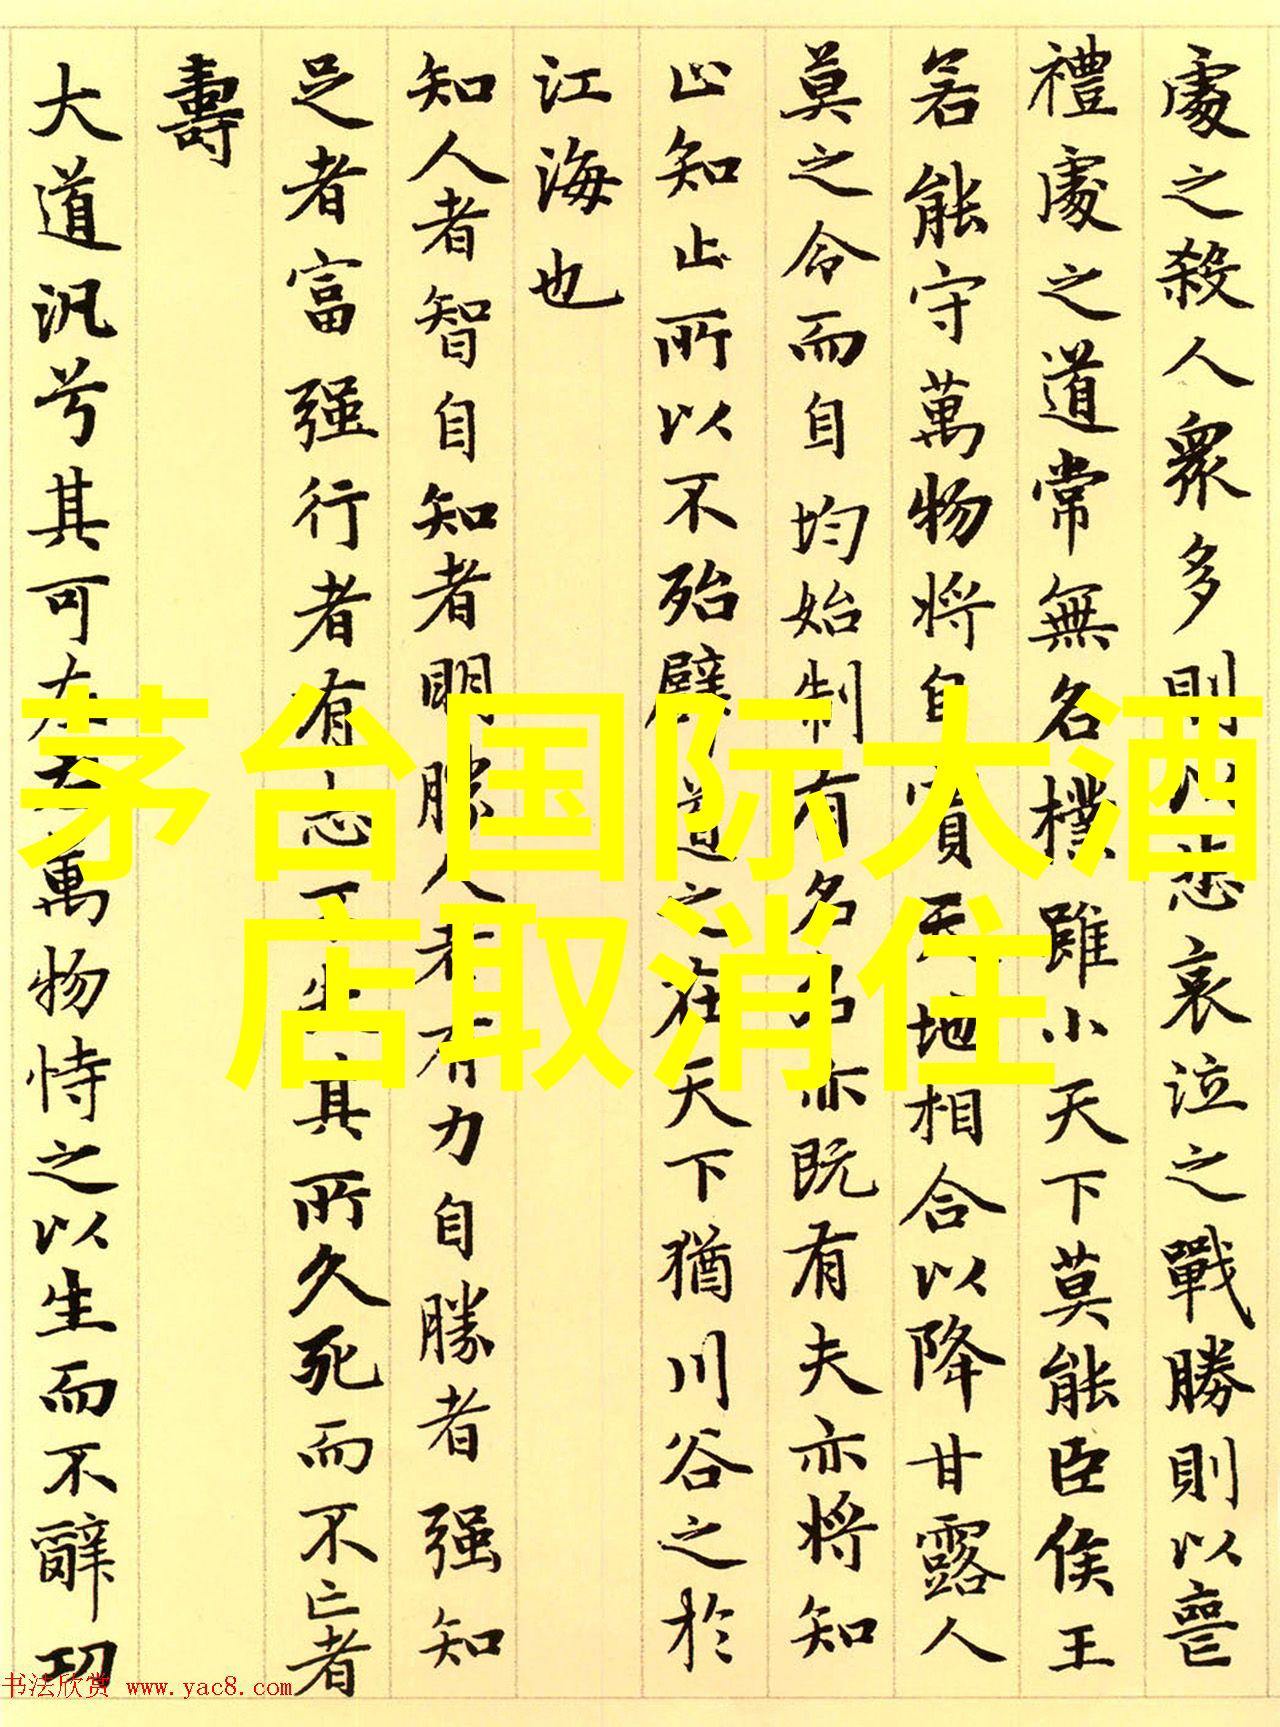 處之殺人衆多則以悲哀泣之戰勝則以喪
禮處之道常無名樸雖小天下莫能臣侯王
若能守萬物將自賓天地相合以降甘露人
莫之令而自均始制有名名亦既有夫亦將知
止知止所以不殆譬道之在天下猶川谷之於
江海也
知人者智自知者明勝人者有力自勝者强知
足者富强行者有志不失其所久死而不亡者
壽
大道汎兮其可左右萬物恃之以生而不辭功
茅台国际大酒
店取消住
书法欣赏 www.yac8.com